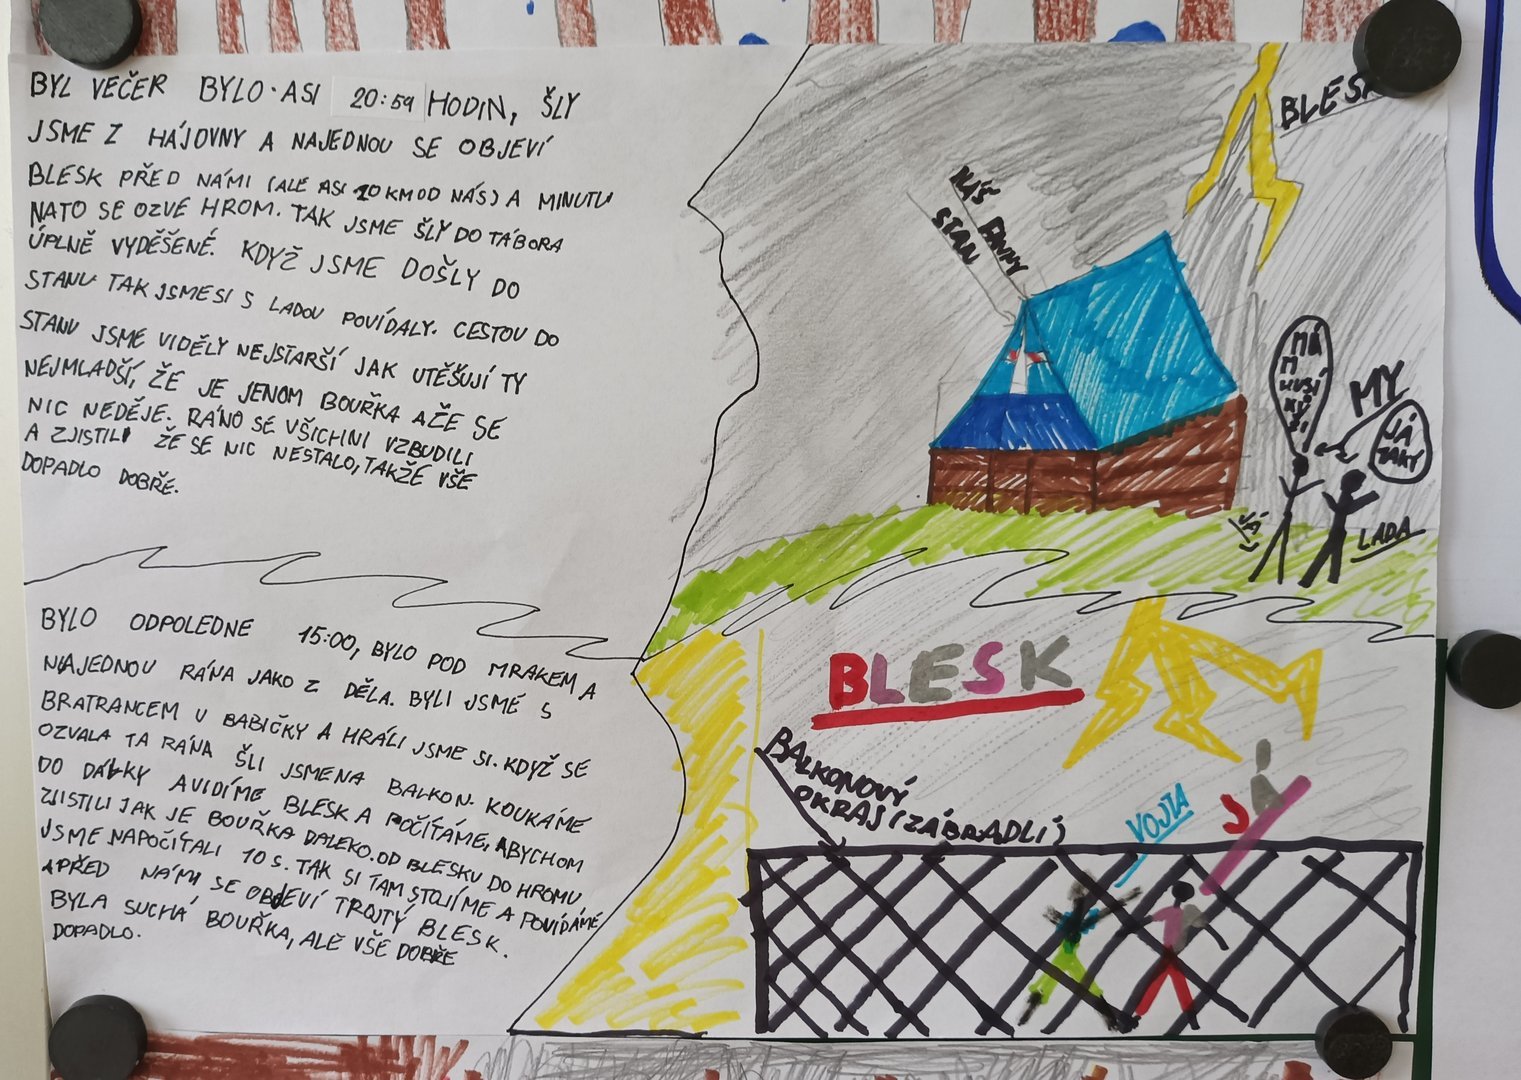 BYL VEČER BYLO·ASI 20:59 HODIN, ŠLY
JSME Z HÁJOVNY A NAJEDNOU SE OBJEVÍ
BLESK PŘED NÁMI (ALE ASI 20 KM OD NÁS) A MINUTU
NATO SE OZVE HROM. TAK JSME ŠLY DO TÁBORA
ÚPLNĚ VYDĚŠENÉ. KDYŽ JSME DOŠLY DO
STANU TAK JSMESI S LADOU POVÍDALY. CESTOU DO
STANU JSME VIDĚLY NEJSTARŠÍ JAK UTĚŠUJÍ TY
NEJMLADŠÍ, ŽE JE JENOM BOUŘKA A ŽE SE
NIC NEDĚJE. RÁNO SE VŠICHNI VZBUDILI
A ZJISTILI ŽE SE NIC NESTALO, TAKŽE VŠE
DOPADLO DOBŘE.
BLESK
NÁŠ FAJNY
STAN
MY
JÁ
TAKY
LADA
BYLO ODPOLEDNE 15:00, BYLO POD MRAKEM A
NAJEDNOU RÁNA JAKO Z DĚLA. BYLI JSME S
BRATRANCEM U BABIČKY A HRÁLI JSME SI. KDYŽ SE
OZVALA TA RÁNA ŠLI JSME NA BALKON. KOUKÁME
DO DÁLKY A VIDÍME BLESK A POČÍTÁME, ABYCHOM
ZJISTILI JAK JE BOUŘKA DALEKO. OD BLESKU DO HROMU
JSME NAPOČÍTALI 10 S. TAK SI TAM STOJÍME A POVÍDÁME
A PŘED NÁMI SE OBJEVÍ TROJTÝ BLESK.
BYLA SUCHÁ BOUŘKA, ALE VŠE DOBŘE
DOPADLO.
BLESK
BALKONOVÝ
OKRAJ (ZÁBRADLÍ)
VOJTA
JÁ